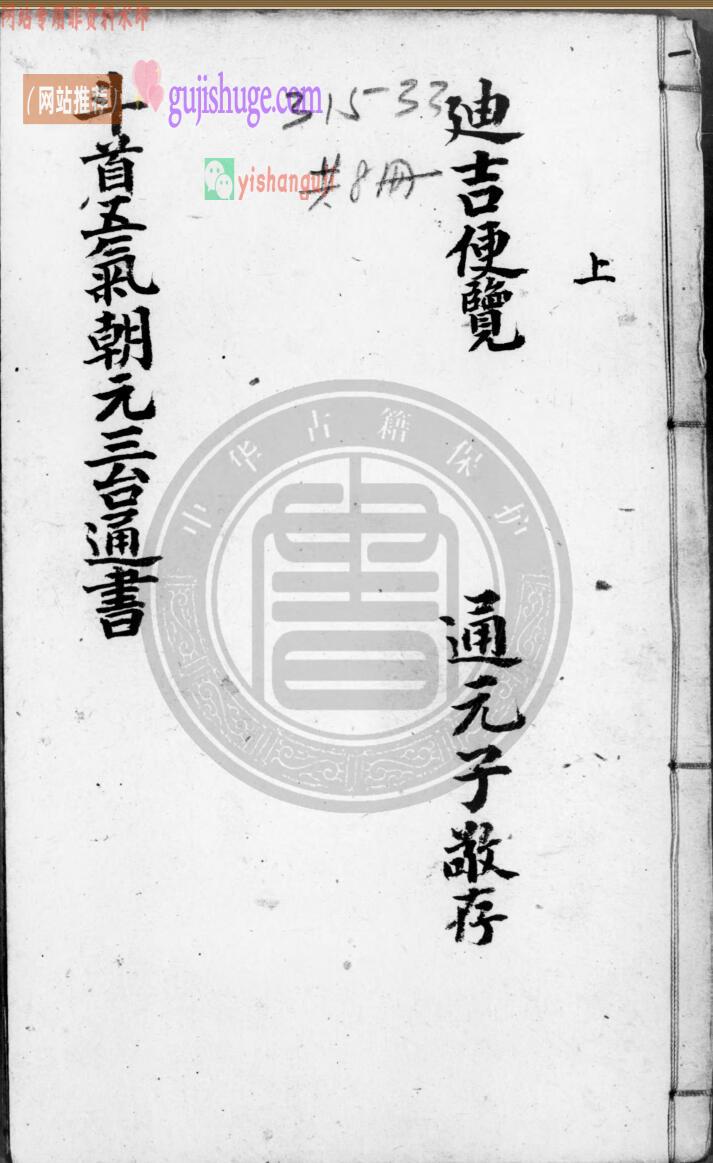 网站专用非资料水印
（网站推荐）
gujishuge.com
315-33
共8冊
yishanguji
一
上
迪吉便覽
通元子敬存
斗首五氣朝元三台通書
中华古籍保护
書